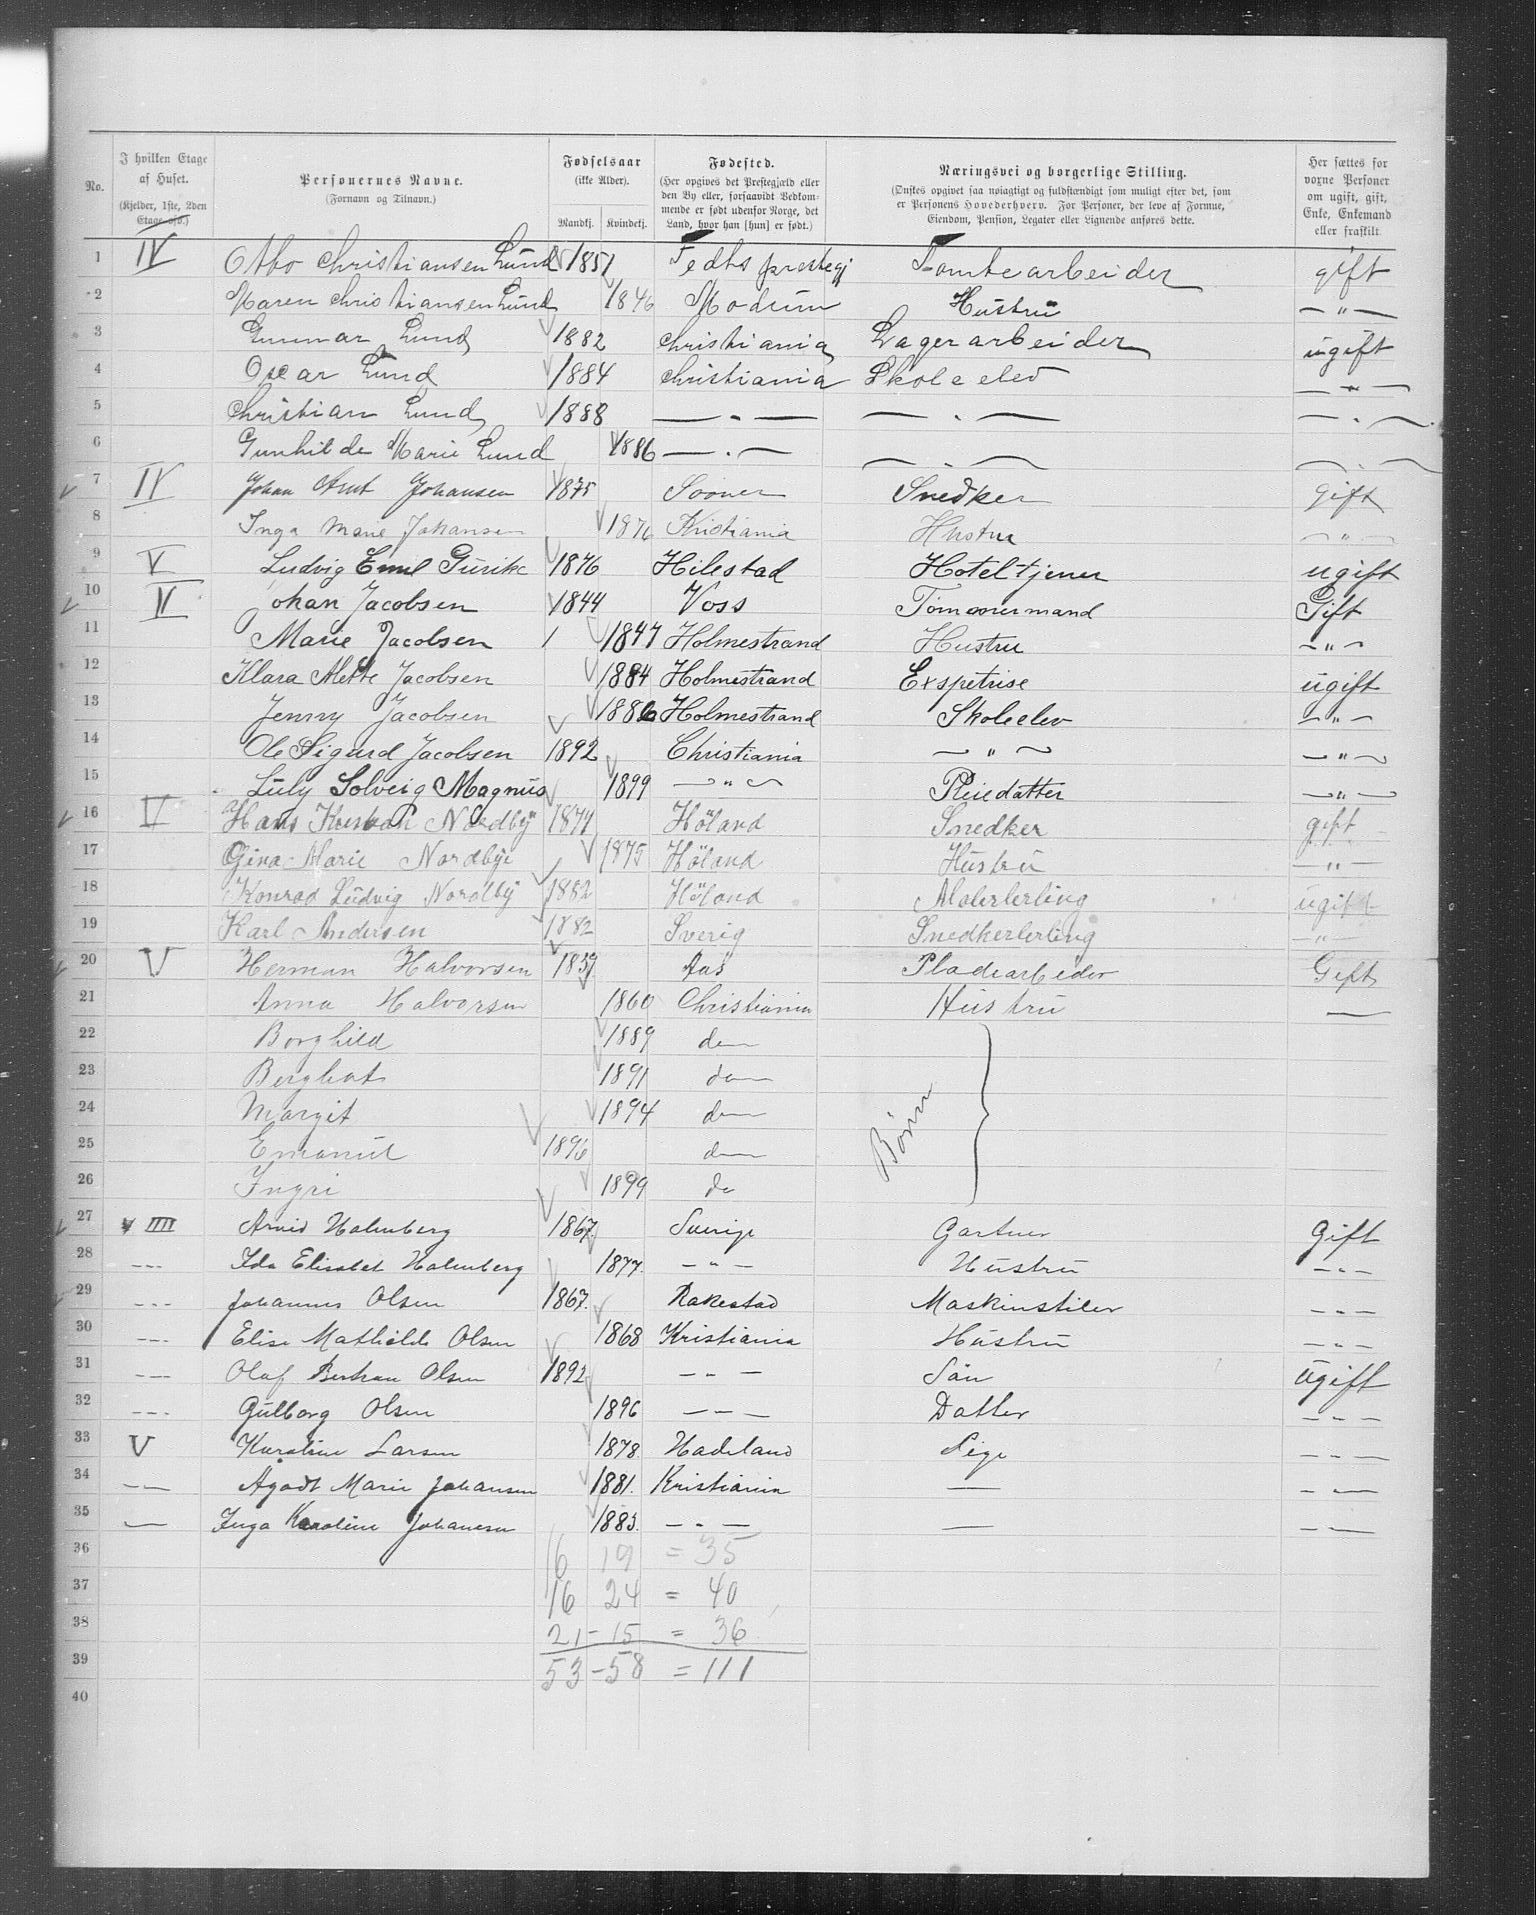 No.
I hvilken Etage af Huset. (Kjelder, 1ste, 2den Etage osv.)
Personernes Navne. (Fornavn og Tilnavn.)
Fødselsaar (ikke Alder). Mandkj. Kvindekj.
Fødested. (Her opgives det Prestegjæld eller den By eller, forsaavidt Vedkommende er født udenfor Norge, det Land, hvor han [hun] er født.)
Næringsvei og borgerlige Stilling. (Ønstes opgivet saa nøiagtigt og fuldstændigt som muligt efter det, som er Personens Hovederhverv. For Personer, der leve af Formue, Eiendom, Pension, Legater eller Lignende anføres dette.)
Her sættes for voxne Personer om ugift, gift, Enke, Enkemand eller fraskilt
1 IV Otto Christiansen Lund 1851 Fedts prestegj Tomtearbeider gift
2 Maren Christiansen Lund 1846 Modum Hustru — " —
3 Gunnar Lund 1882 Christiania Lagerarbeider ugift
4 Oscar Lund 1884 Christiania Skoleelev — " —
5 Christian Lund 1888 — " — — " — — " —
6 Gunhilde Marie Lund 1886 — " — — " — — " —
7 IV Johan Arnt Johansen 1875 Sooner Snedker gift
8 Inga Marie Johansen 1876 Kristiania Hustru — " —
9 V Ludvig Emil Gurike 1876 Hilestad Hoteltjener ugift
10 V Johan Jacobsen 1844 Voss Tømmermand Gift
11 Marie Jacobsen 1 1847 Holmestrand Hustru — " —
12 Klara Mette Jacobsen 1884 Holmestrand Exspetrise ugift
13 Jenny Jacobsen 1886 Holmestrand Skoleelev — " —
14 Ole Sigurd Jacobsen 1892 Christiania — " — — " —
15 Luly Solveig Magnus 1899 — " — Pleiedatter — " —
16 V Hans Kristian Nordby 1871 Høland Snedker gift
17 Gina Marie Nordbye 1875 Høland Hustru — " —
18 Konrad Ludvig Nordby 1882 Høland Malerlerling ugift
19 Karl Andersen 1882 Sverig Snedkerlerling — " —
20 V Herman Halvorsen 1859 Aas Pladearbeider Gift
21 Anna Halvorsen 1860 Christiania Hustru —
22 Borghild 1889 do
23 Berghot 1891 do
24 Margit 1894 do
Børn
25 Emanuel 1896 do
26 Ingri 1899 do
27 IIII Arvid Halmberg 1867 Sverige Gartner gift
28 --- Ida Elisabet Halmberg 1877. — " — Hustru — " —
29 --- Johannes Olsen 1867. Rakestad Maskinstiler — " —
30 --- Elise Mathilde Olsen 1868 Kristiania Hustru — " —
31 --- Olaf Bertran Olsen 1892 — " — Sön ugift
32 --- Gulborg Olsen 1896 — " — Datter — " —
33 V Karoline Larsen 1878 Hadeland Pige — " —
34 --- Agodt Marie Johansen 1881. Kristiania — — " —
35 — Inga Karoline Johansen 1883. — " — — — " —
36 16 19 = 35
37 16 24 = 40
38 21 - 15 = 36
39 53 - 58 = 111
40